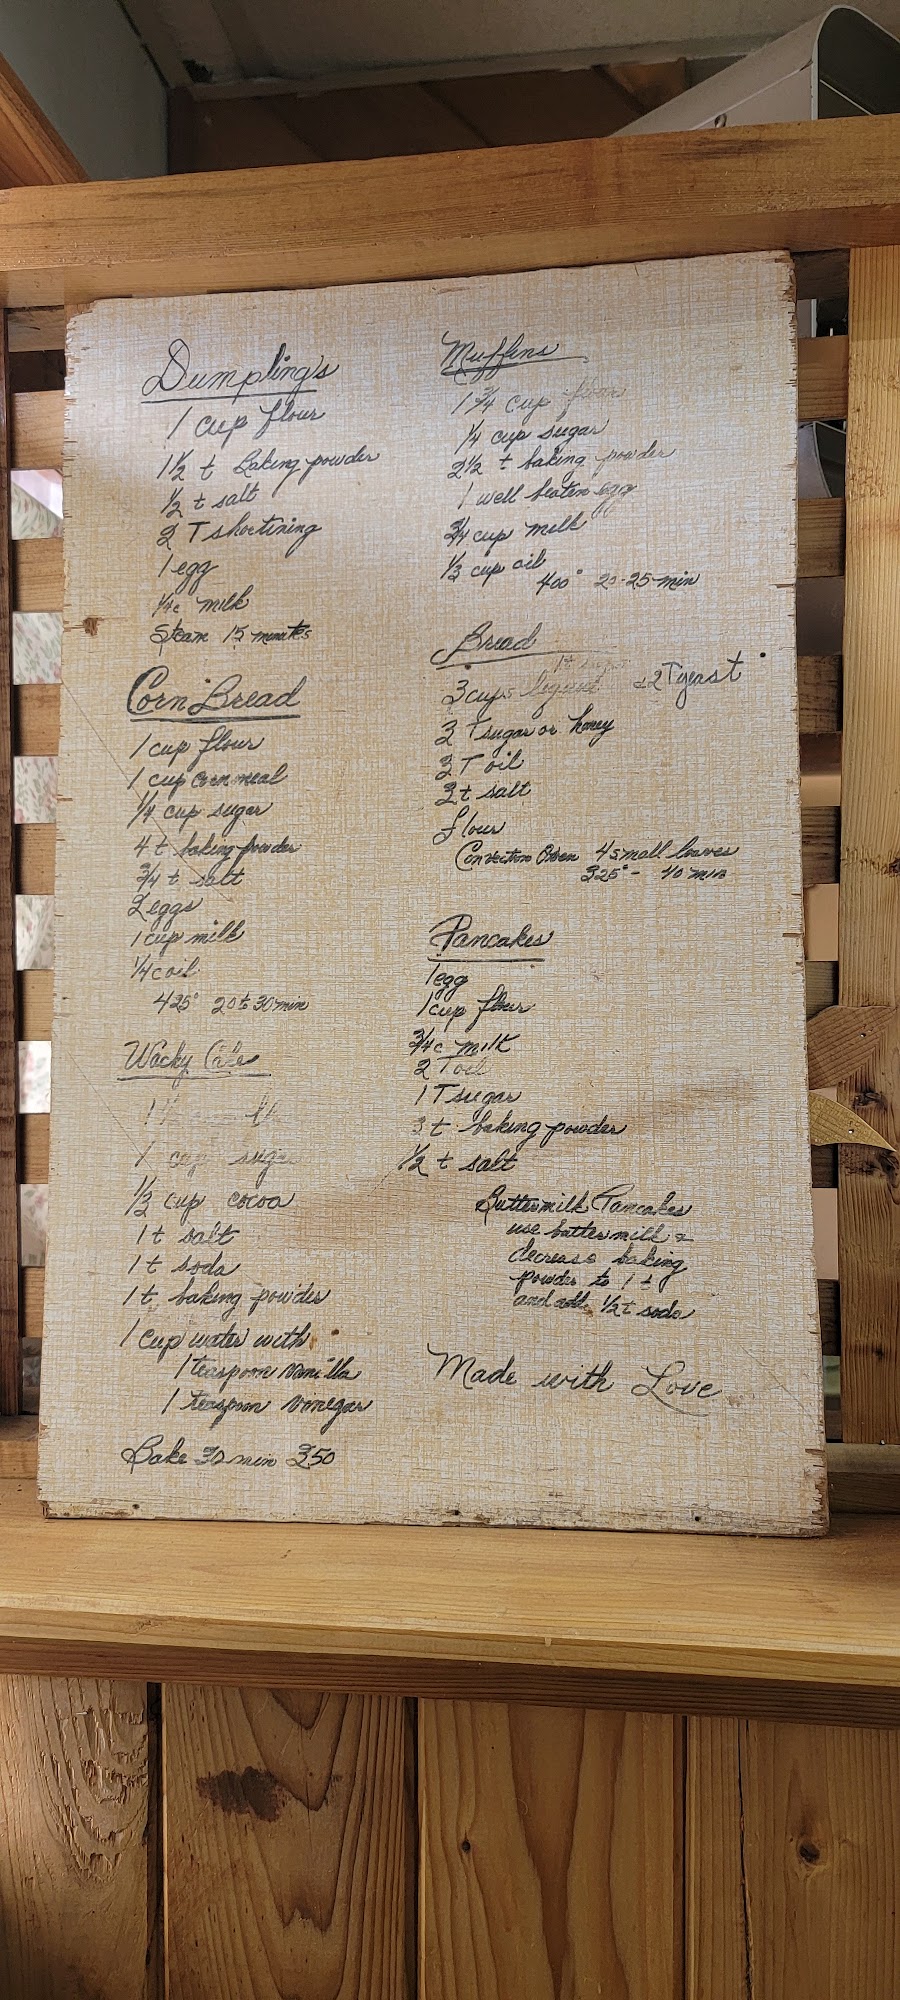 Dumplings
1 cup flour
1½ t baking powder
½ t salt
2 T shortining
1 egg
¼c milk
Steam 15 minutes
Corn Bread
1 cup flour
1 cup cornmeal
¼ cup sugar
4 t baking powder
¾ t salt
2 eggs
1 cup milk
¼c oil
425° 20 to 30 min
Wacky Cake
1
1 cup sugar
⅓ cup cocoa
1 t salt
1 t soda
1 t baking powder
1 cup water with
1 teaspoon vanilla
1 teaspoon vinegar
Bake 30 min 350
Muffins
1¾ cup flour
¼ cup sugar
2½ t baking powder
1 well beaten egg
¾ cup milk
⅓ cup oil
400° 20-25 min
Bread
1 t sugar
3 cups liquid 2 T yeast
3 T sugar or honey
3 T oil
3 t salt
flour
Convection Oven 4 small loaves
325° - 40 min
Pancakes
1 egg
1 cup flour
¾c milk
2 T oil
1 T sugar
3 t baking powder
½ t salt
Buttermilk Pancakes
use buttermilk &
decrease baking
powder to 1 t
and add ½ t soda
Made with Love